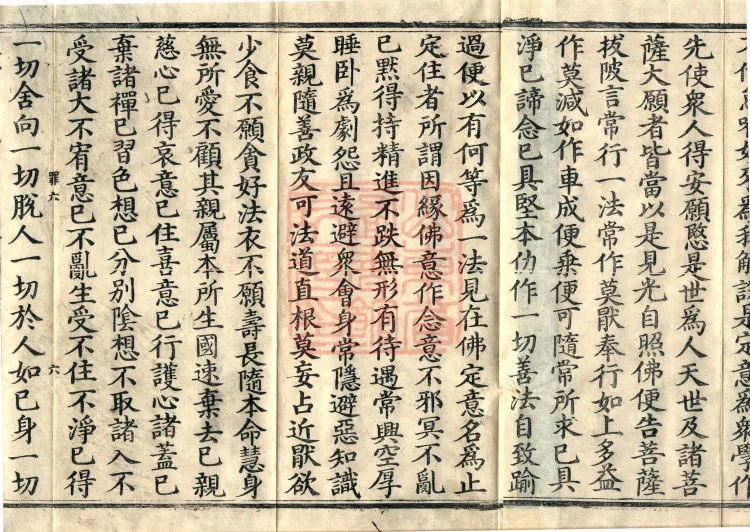 先使衆人得安願愍是世爲人天世及諸菩
薩大願者皆當以是見光自照佛便告菩薩
拔陂言常行一法常作莫厭奉行如上多益
作莫減如作車成便乗便可隨常所求已具
淨已諦念已具堅本仂作一切善法自致踰
過便以有何等爲一法見在佛定意名爲止
定住者所謂因緣佛意作念意不邪冥不亂
已黙得持精進不跌無形有待遇常興空厚
睡卧爲劇怨且遠避衆會身常隱避惡知識
莫親隨善政友可法道直根莫妄占近厭欲
少食不願貪好法衣不願壽長隨本命慧身
無所愛不顧其親屬本所生國速棄去已親
慈心已得哀意已住喜意已行護心諸蓋已
棄諸禪已習色想已分別陰想不取諸入不
受諸大不宥意已不亂生受不住不淨已得
罪六
六
一切舍向一切脫人一切於人如已身一切